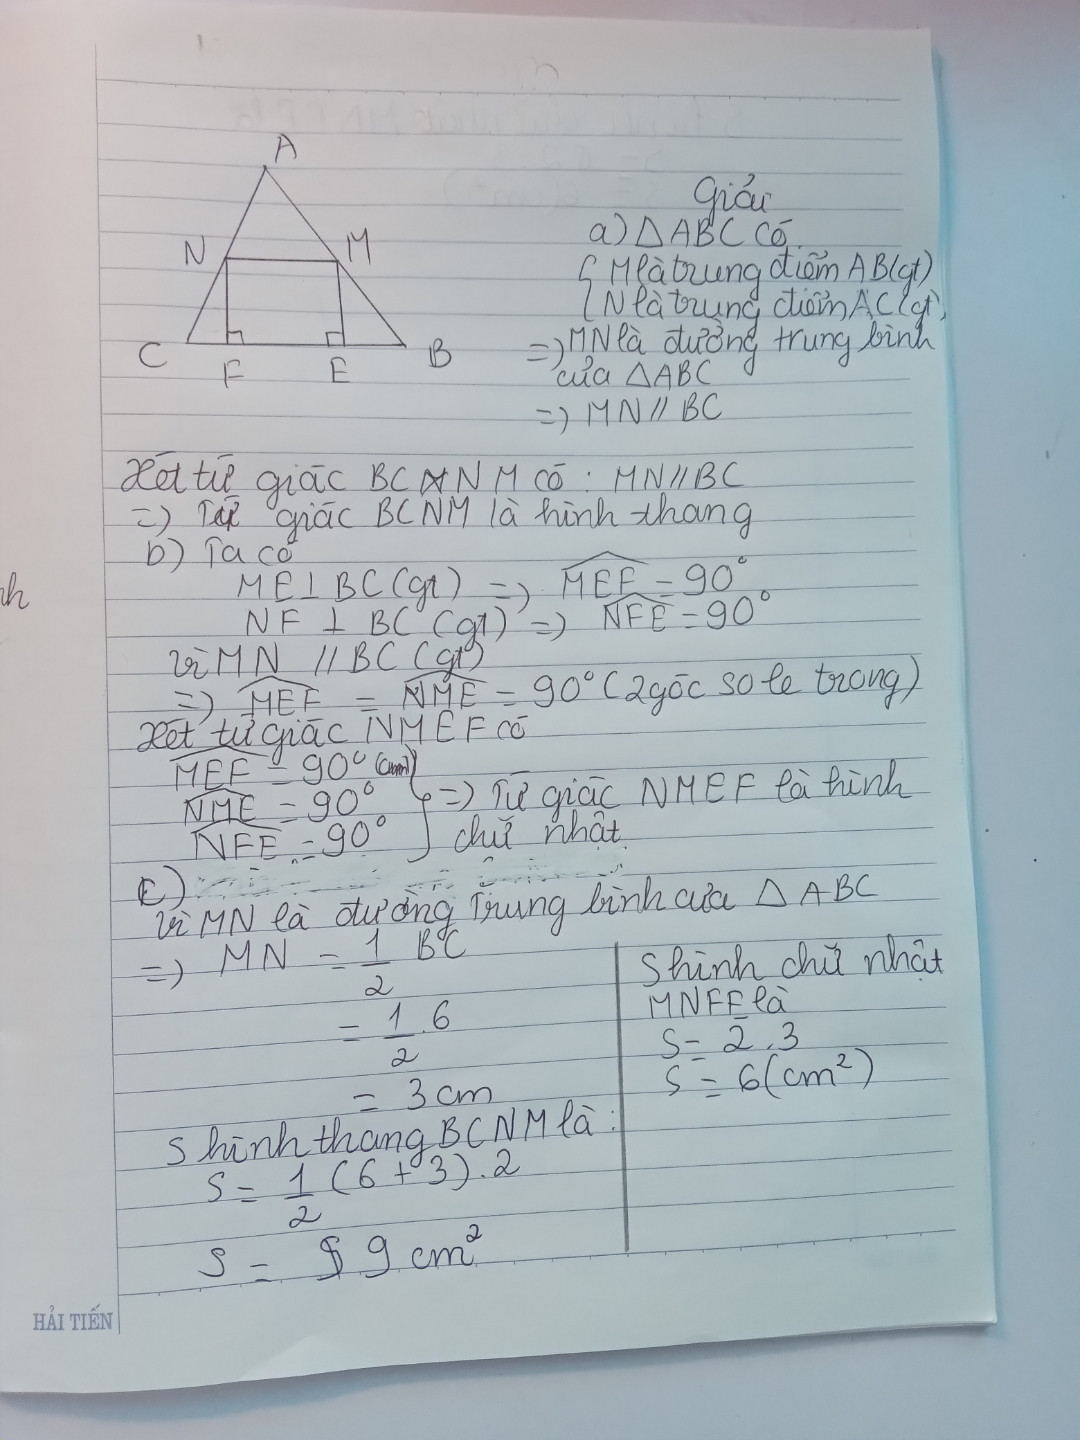 A
N
M
C
F
E
B
Giải
a) △ABC có
{ M là trung điểm AB (gt)
{ N là trung điểm AC (gt)
=> MN là đường trung bình
của △ABC
=> MN // BC
Xét tứ giác BCNM có : MN // BC
=> Tứ giác BCNM là hình thang
b) Ta có
ME ⊥ BC (gt) => MEF = 90°
NF ⊥ BC (gt) => NFE = 90°
Vì MN // BC (gt)
=> MEF = NME = 90° (2 góc so le trong)
Xét tứ giác NMEF có
MEF = 90° (cmt)
NME = 90° } => Tứ giác NMEF là hình
NFE = 90° chữ nhật
c)
Vì MN là đường Trung bình của △ ABC
=> MN = 1/2 BC
= 1/2 . 6
= 3 cm
S hình thang BCNM là :
S = 1/2 (6 + 3) . 2
S = 9 cm²
S hình chữ nhật
MNFE là
S = 2 . 3
S = 6 (cm²)
nh
HẢI TIẾN